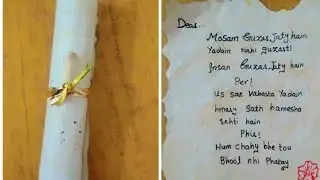 Dear...
Mosam Guzar Jaty hain
Yadain Nahi guzasti
Insan Guzar Jaty hain
Per!
us sae Vabasta Yadain
hmary Sath hamesha
rehti hain
Phir!
Hum chahy bhe tou
Bhool nhi Phatay